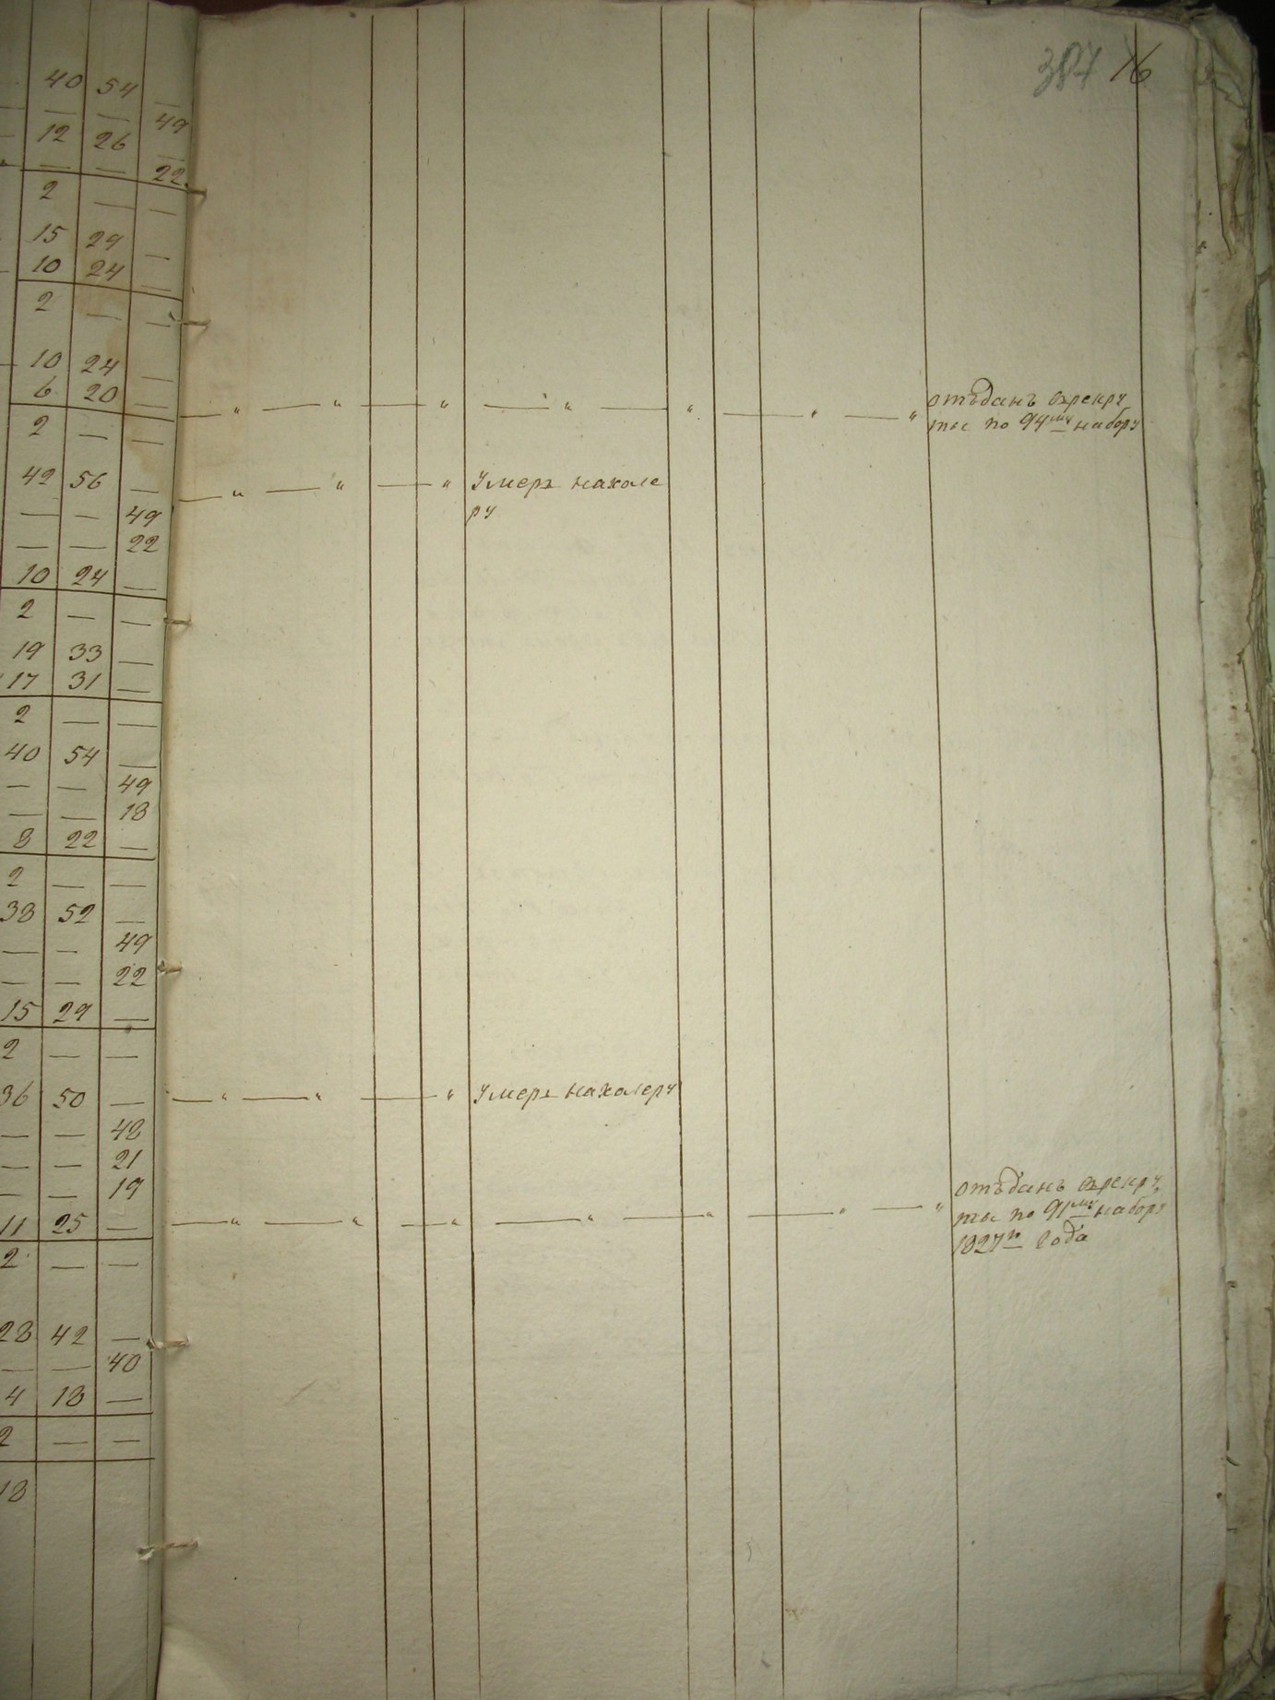 387 16
40 54 —
— — 49
12 26 —
— — 22
2 — —
15 29 —
10 24 —
2 — —
10 24 —
6 20 —
отъданъ врекру
ты по 94му набору
2 — —
42 56 —
умеръ нахоле
ру
— — 49
— — 22
10 24 —
2 — —
19 33 —
17 31 —
2 — —
40 54 —
— — 49
— — 18
8 22 —
2 — —
38 52 —
— — 49
— — 22
15 29 —
2 — —
36 50 —
умеръ нахолеру
— — 48
— — 21
— — 19
11 25 —
отъданъ врекру
ты по 91му набору
1827го года
2 — —
28 42 —
— — 40
4 18 —
2 — —
18